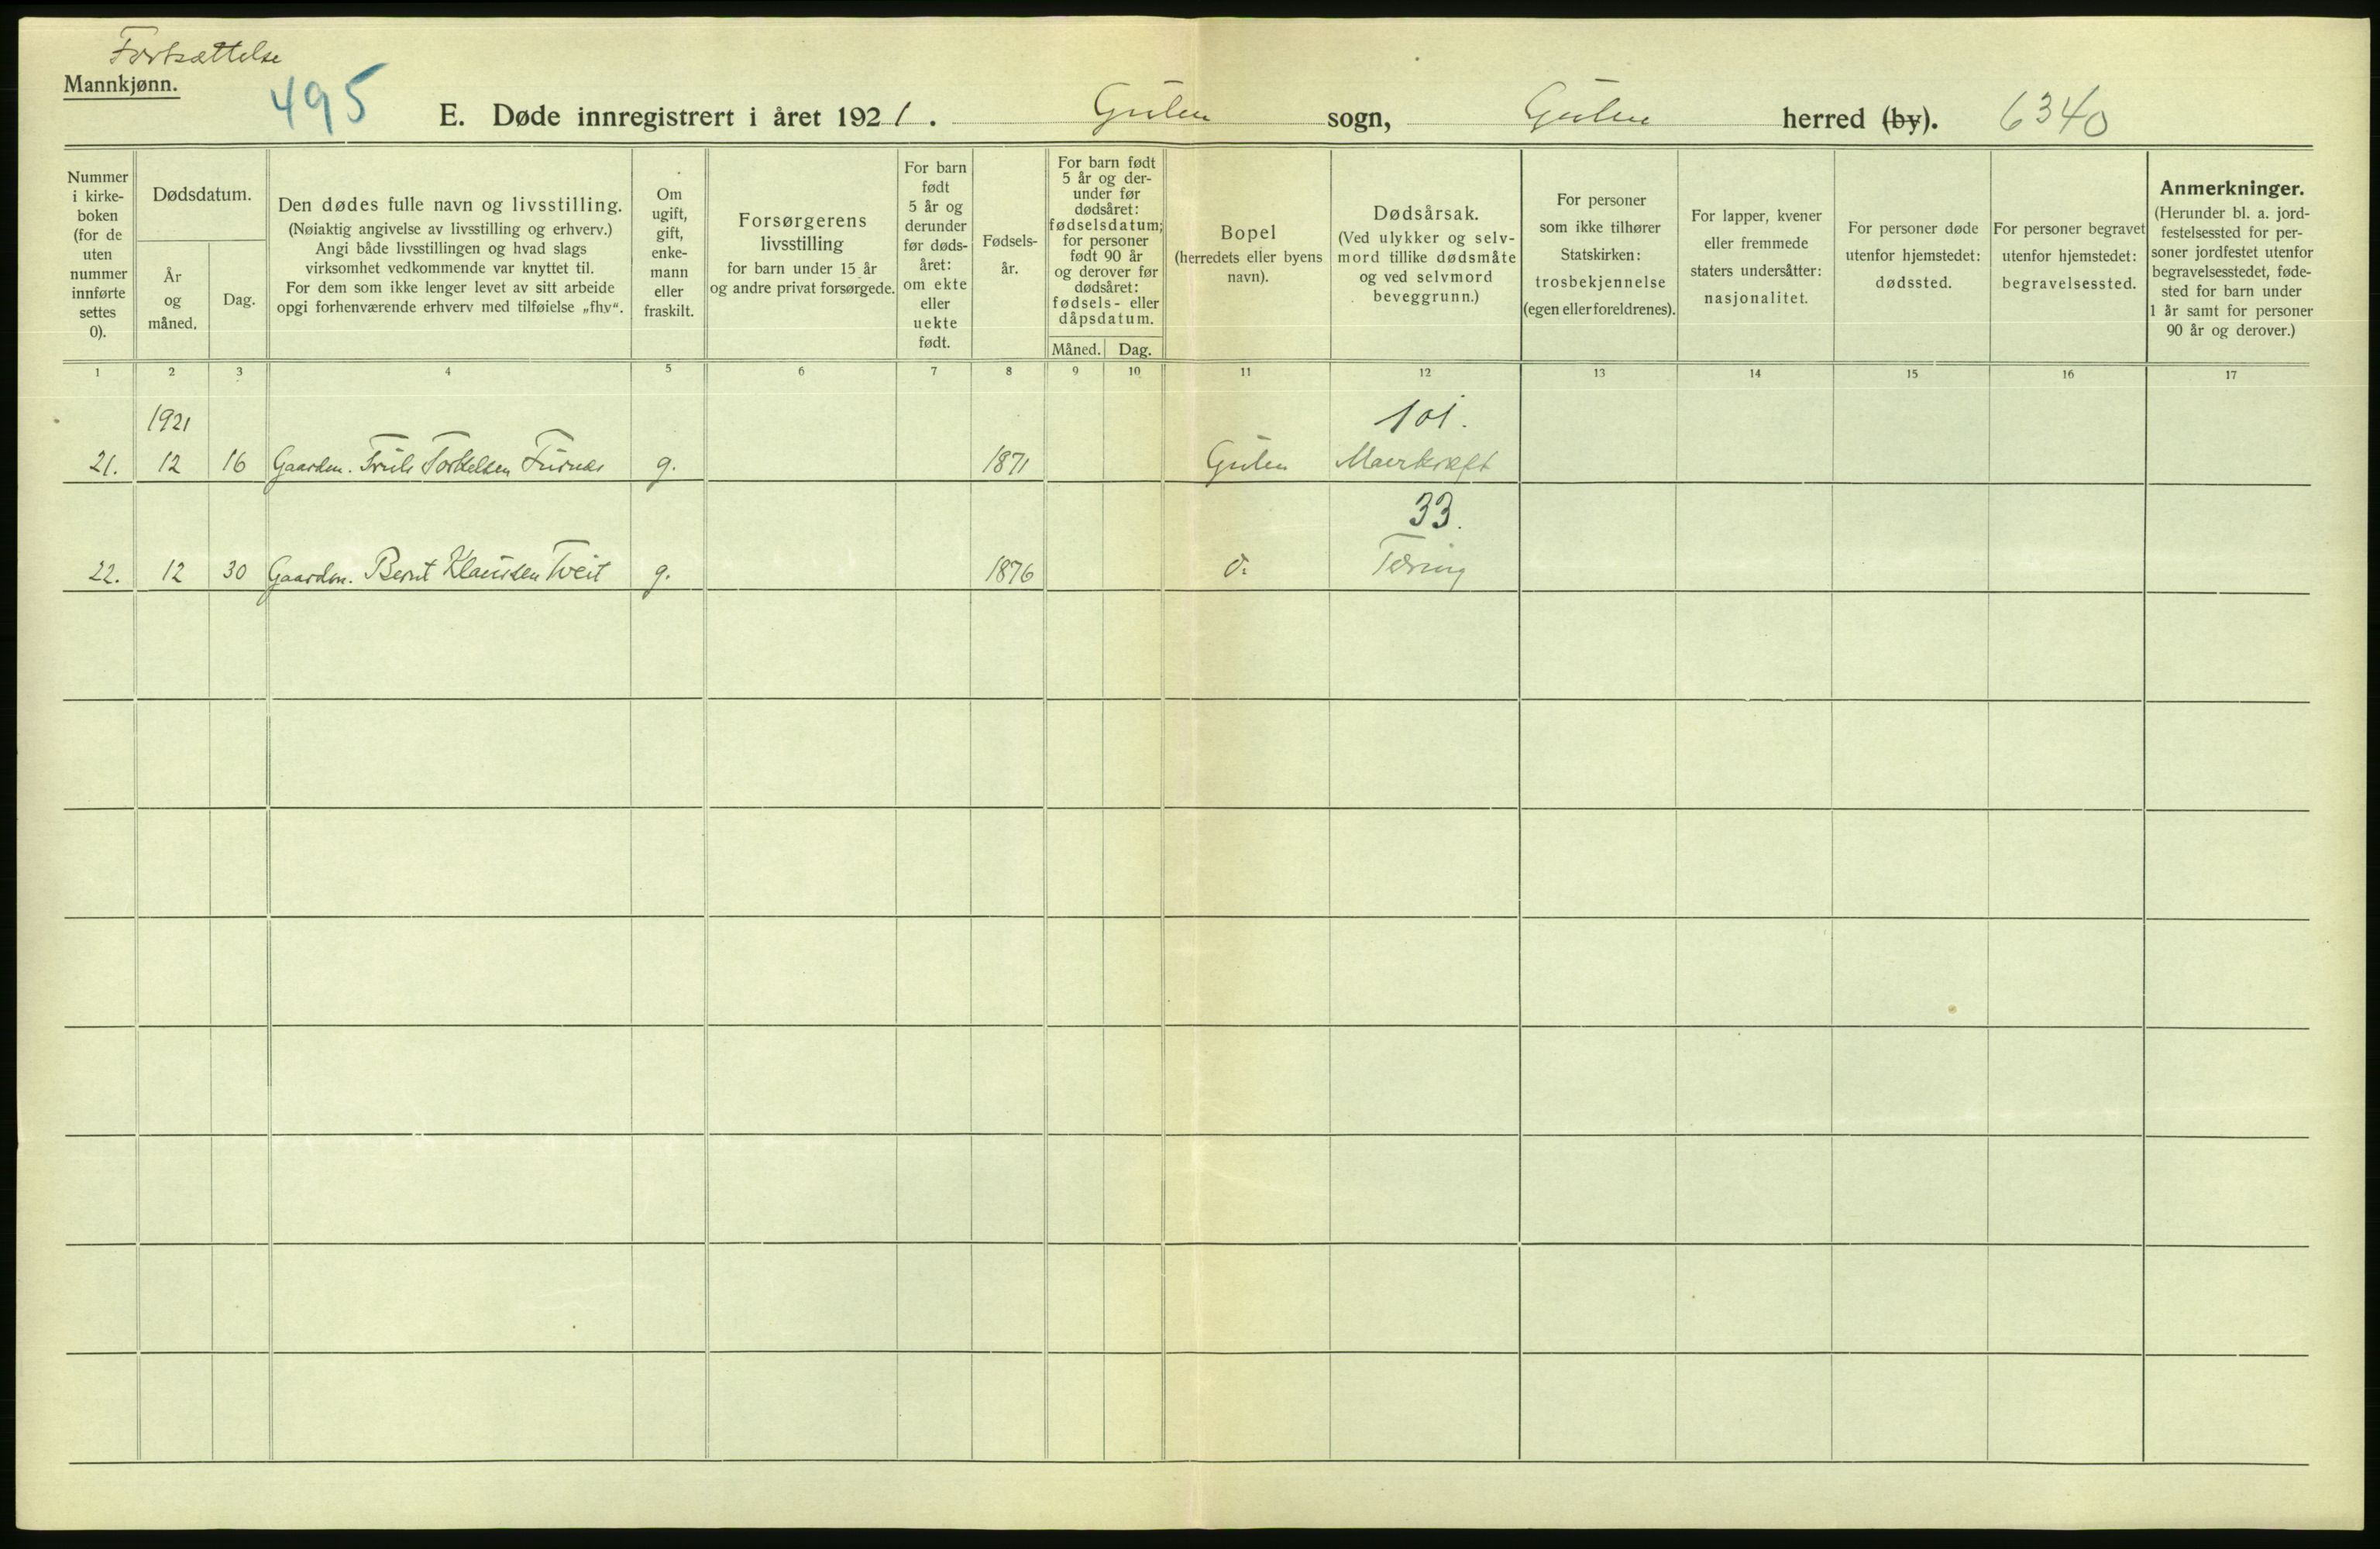 Fortsættelse
Mannkjønn.
495
E. Døde innregistrert i året 1921. Gulen sogn, Gulen herred (by). 6340
Nummer
i kirke-
boken
(for de
uten
nummer
innførte
settes
0).
Dødsdatum.
År
og
måned.
Dag.
Den dødes fulle navn og livsstilling.
(Nøiaktig angivelse av livsstilling og erhverv.)
Angi både livsstillingen og hvad slags
virksomhet vedkommende var knyttet til.
For dem som ikke lenger levet av sitt arbeide
opgi forhenværende erhverv med tilføielse „fhv“.
Om
ugift,
gift,
enke-
mann
eller
fraskilt.
Forsørgerens
livsstilling
for barn under 15 år
og andre privat forsørgede.
For barn
født
5 år og
derunder
før døds-
året:
om ekte
eller
uekte
født.
Fødsels-
år.
For barn født
5 år og der-
under før
dødsåret:
fødselsdatum;
for personer
født 90 år
og derover før
dødsåret:
fødsels- eller
dåpsdatum.
Måned. Dag.
Bopel
(herredets eller byens
navn).
Dødsårsak.
(Ved ulykker og selv-
mord tillike dødsmåte
og ved selvmord
beveggrunn.)
For personer
som ikke tilhører
Statskirken:
trosbekjennelse
(egen eller foreldrenes).
For lapper, kvener
eller fremmede
staters undersåtter:
nasjonalitet.
For personer døde
utenfor hjemstedet:
dødssted.
For personer begravet
utenfor hjemstedet:
begravelsessted.
Anmerkninger.
(Herunder bl. a. jord-
festelsessted for per-
soner jordfestet utenfor
begravelsesstedet, føde-
sted for barn under
1 år samt for personer
90 år og derover.)
1 2 3 4 5 6 7 8 9 10 11 12 13 14 15 16 17
1921 101.
21. 12 16 Gaardm. Truls Torkelsen Furnes g. 1871 Gulen Mavekræft
33.
22. 12 30 Gaardm. Bernt Klausen Tveit g. 1876 Tæring